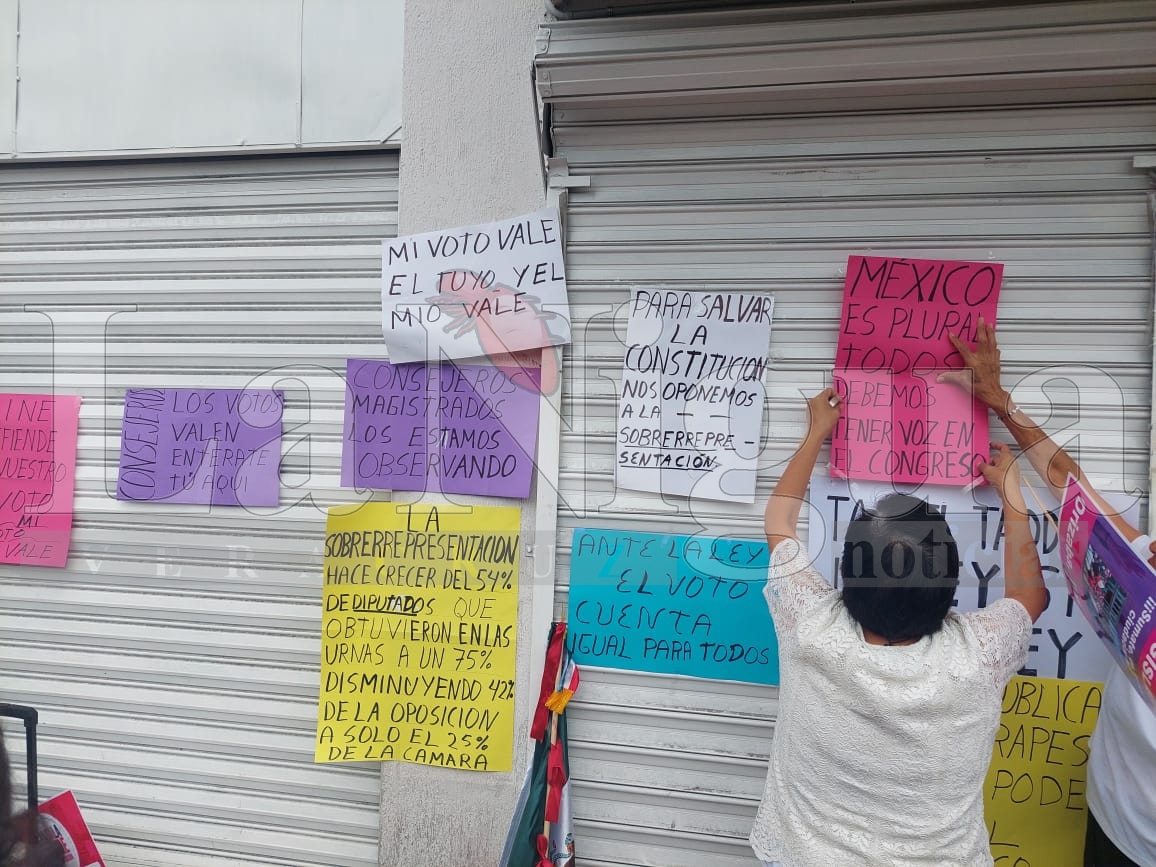 INE
FIENDE
NUESTRO
VOTO
MI
VALE
CONSEJERO!
LOS VOTOS
VALEN
ENTÉRATE
TU AQUI
MI VOTO VALE
EL TUYO Y EL
MIO VALE
CONSEJEROS
MAGISTRADOS
LOS ESTAMOS
OBSERVANDO
LA
SOBRERREPRESENTACION
HACE CRECER DEL 54%
DE DIPUTADOS QUE
OBTUVIERON EN LAS
URNAS A UN 75%
DISMINUYENDO 42%
DE LA OPOSICION
A SOLO EL 25%
DE LA CAMARA
PARA SALVAR
LA
CONSTITUCION
NOS OPONEMOS
A LA - -
SOBRERREPRE -
SENTACIÓN
ANTE LA LEY
EL VOTO
CUENTA
IGUAL PARA TODOS
MÉXICO
ES PLURAL
TODOS
DEBEMOS
TENER VOZ EN
EL CONGRESO
EY
UBLICA
RAPES
PODE
¡¡¡Sumate
ciudad
La Nigua
VERACRUZ noticia